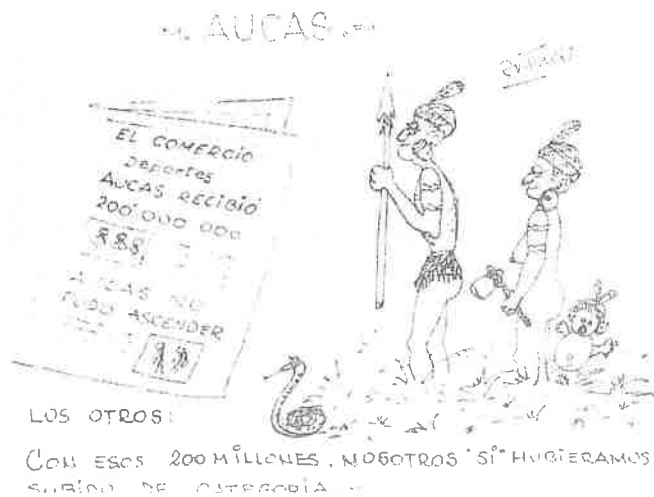 AUCAS
EL COMERCIO
Deportes
AUCAS RECIBIÓ
200'000 000
AUCAS NO
PUDO ASCENDER
LOS OTROS:
CON ESOS 200 MILLONES, NOSOTROS "SI" HUBIERAMOS
SUBIDO DE CATEGORIA